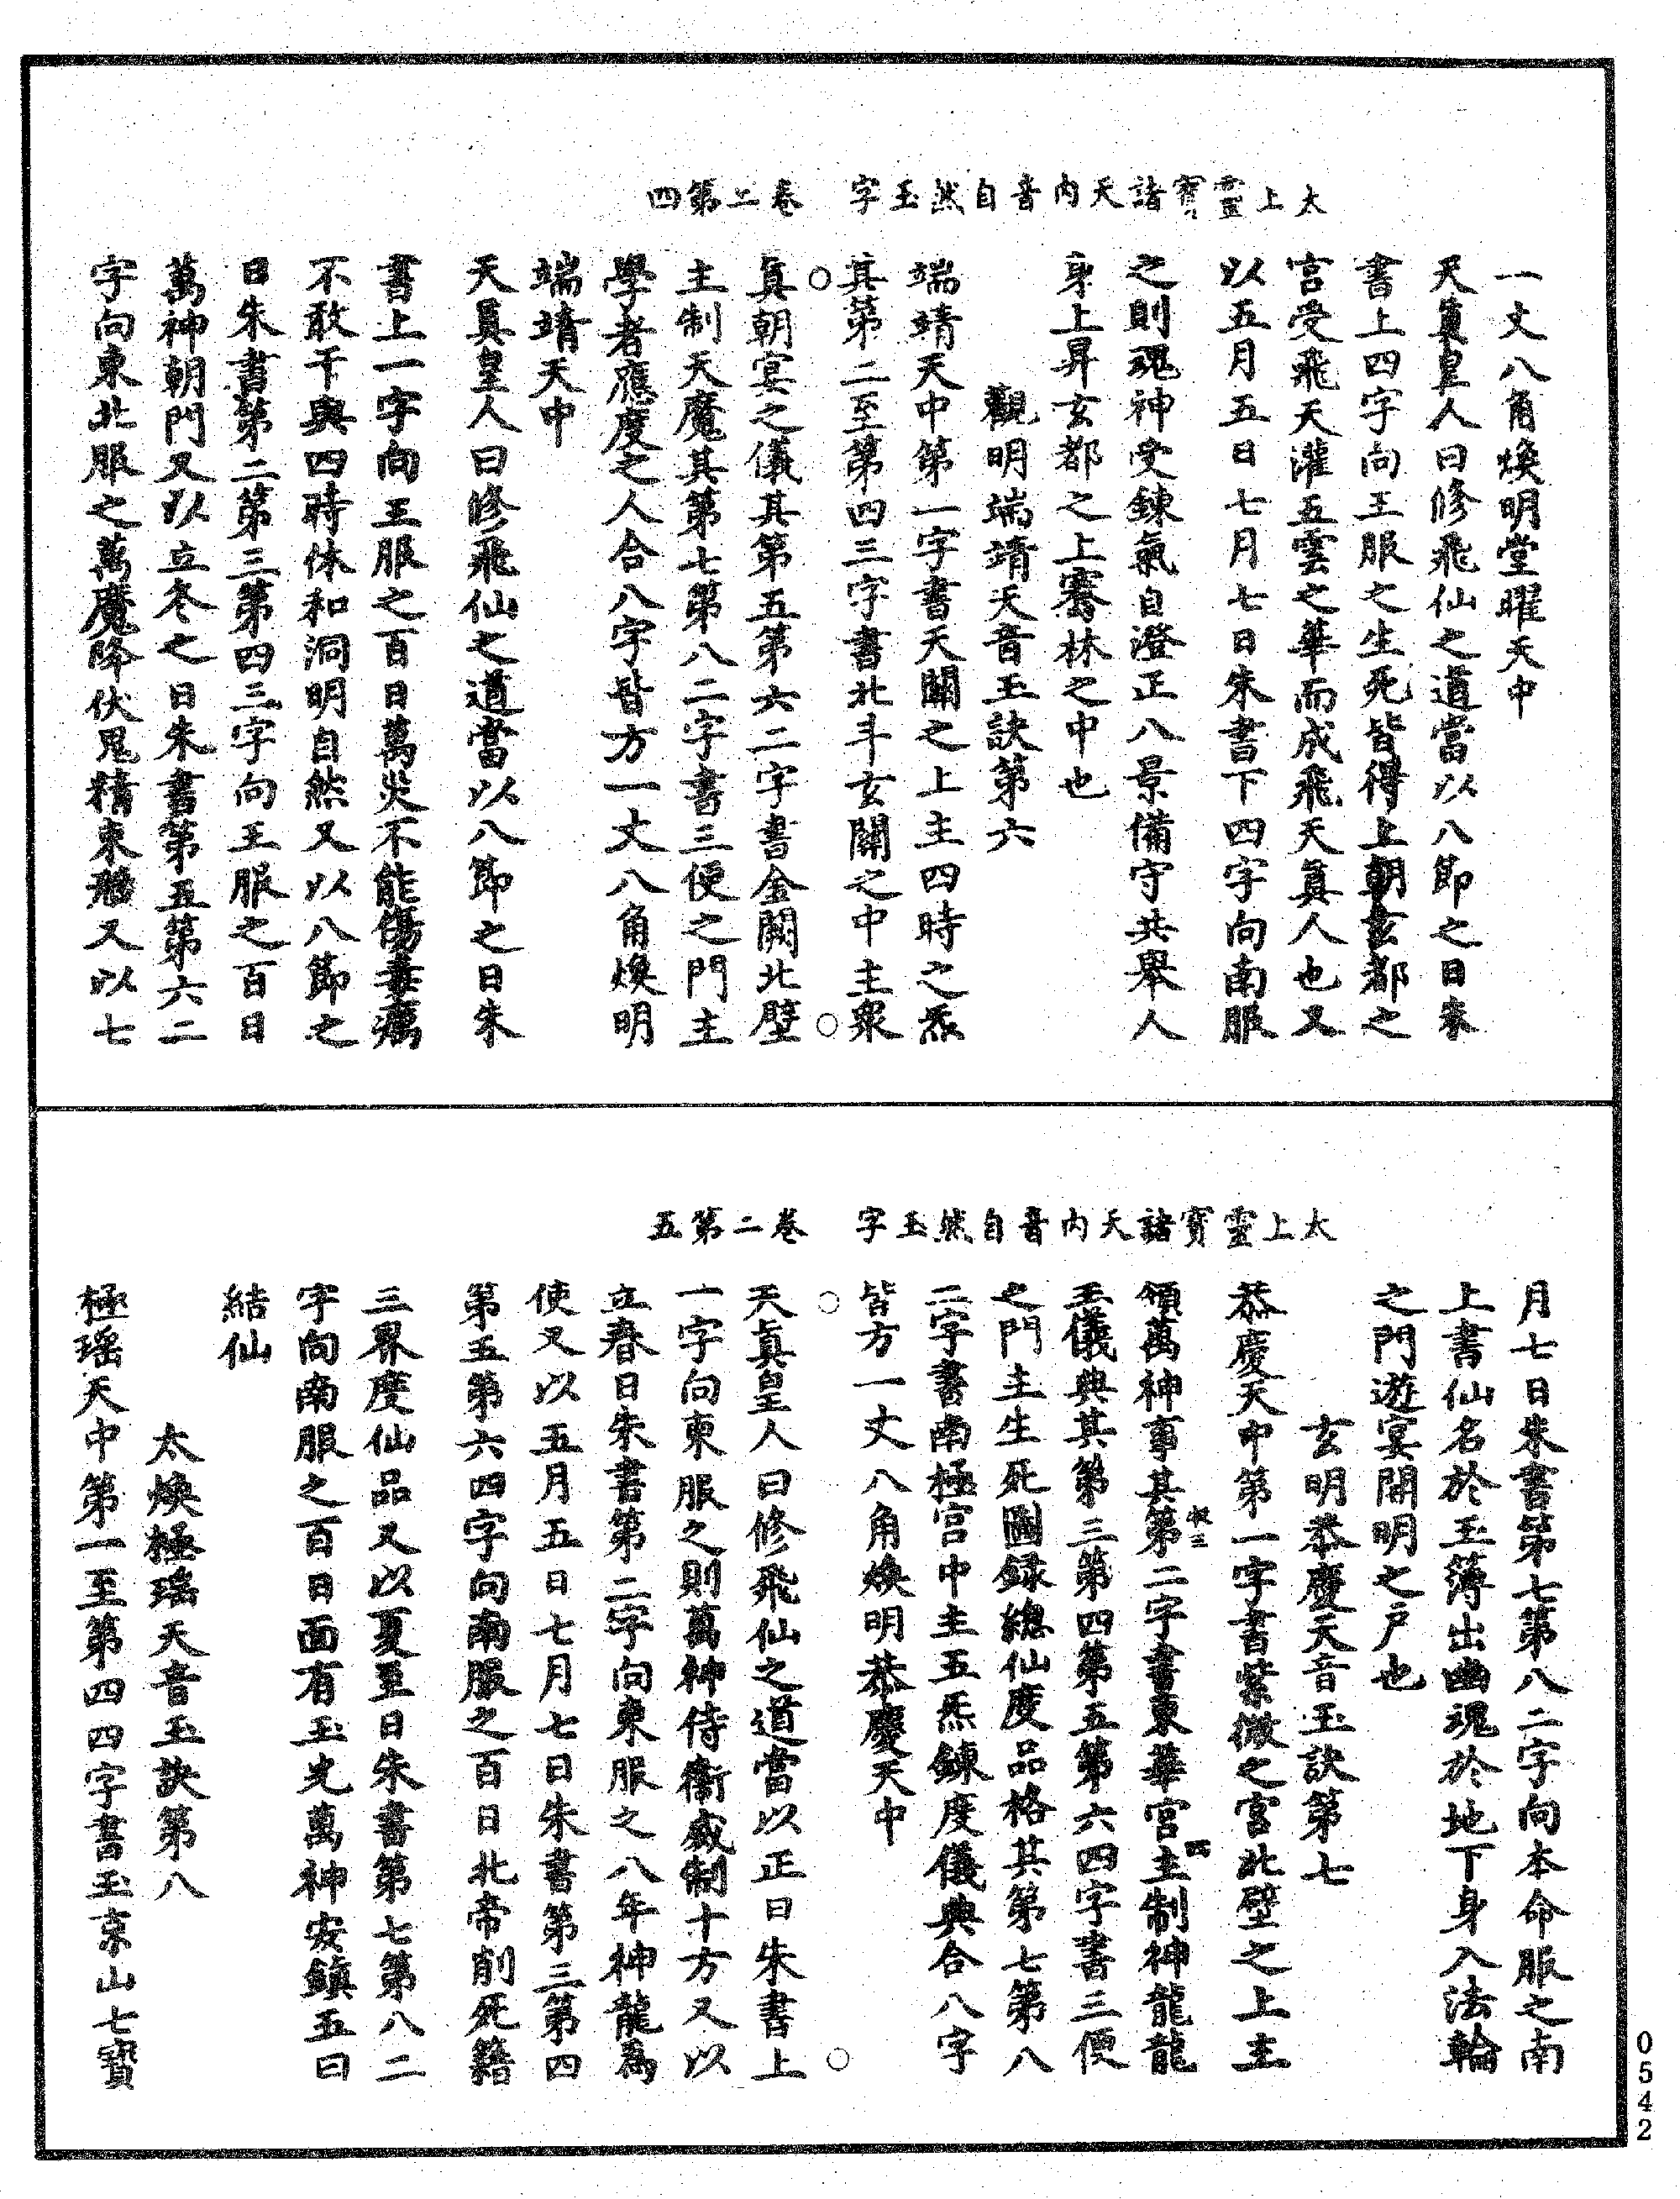 太上靈寶諸天內音自然玉字　卷二第四
一丈八角煥明堂曜天中
天真皇人曰修飛仙之道當以八節之日朱
書上四字向王服之生死皆得上朝玄都之
宮受飛天灌五雲之華而成飛天真人也又
以五月五日七月七日朱書下四字向南服
之則魂神受鍊氣自澄正八景備守共舉人
身上昇玄都之上騫林之中也
觀明端靖天音玉訣第六
端靖天中第一字書天關之上主四時之炁
其第二至第四三字書北斗玄關之中主衆
真朝宴之儀其第五第六二字書金闕北壁
主制天魔其第七第八二字書三便之門主
學者應度之人合八字皆方一丈八角煥明
端靖天中
天真皇人曰修飛仙之道當以八節之日朱
書上一字向王服之百日萬災不能傷毒癘
不敢干與四時休和洞明自然又以八節之
日朱書第二第三第四三字向王服之百日
萬神朝門又以立冬之日朱書第五第六二
字向東北服之萬魔降伏鬼精束形又以七
太上靈寶諸天內音自然玉字　卷二第五
月七日朱書第七第八二字向本命服之南
上書仙名於玉簿出幽魂於地下身入法輪
之門遊宴開明之戶也
玄明恭慶天音玉訣第七
恭慶天中第一字書紫微之宮北壁之上主
領萬神事其第二字書東華宮主制神龍龍
玉儀典其第三第四第五第六四字書三便
之門主生死圖録總仙度品格其第七第八
二字書南極宮中主五炁鍊度儀典合八字
皆方一丈八角煥明恭慶天中
天真皇人曰修飛仙之道當以正日朱書上
一字向東服之則萬神侍衞威制十方又以
立春日朱書第二字向東服之八年神龍爲
使又以五月五日七月七日朱書第三第四
第五第六四字向南服之百日北帝削死籍
三界度仙品又以夏至日朱書第七第八二
字向南服之百日面有玉光萬神安鎮五日
結仙
太煥極瑤天音玉訣第八
極瑤天中第一至第四四字書玉京山七寶
0542